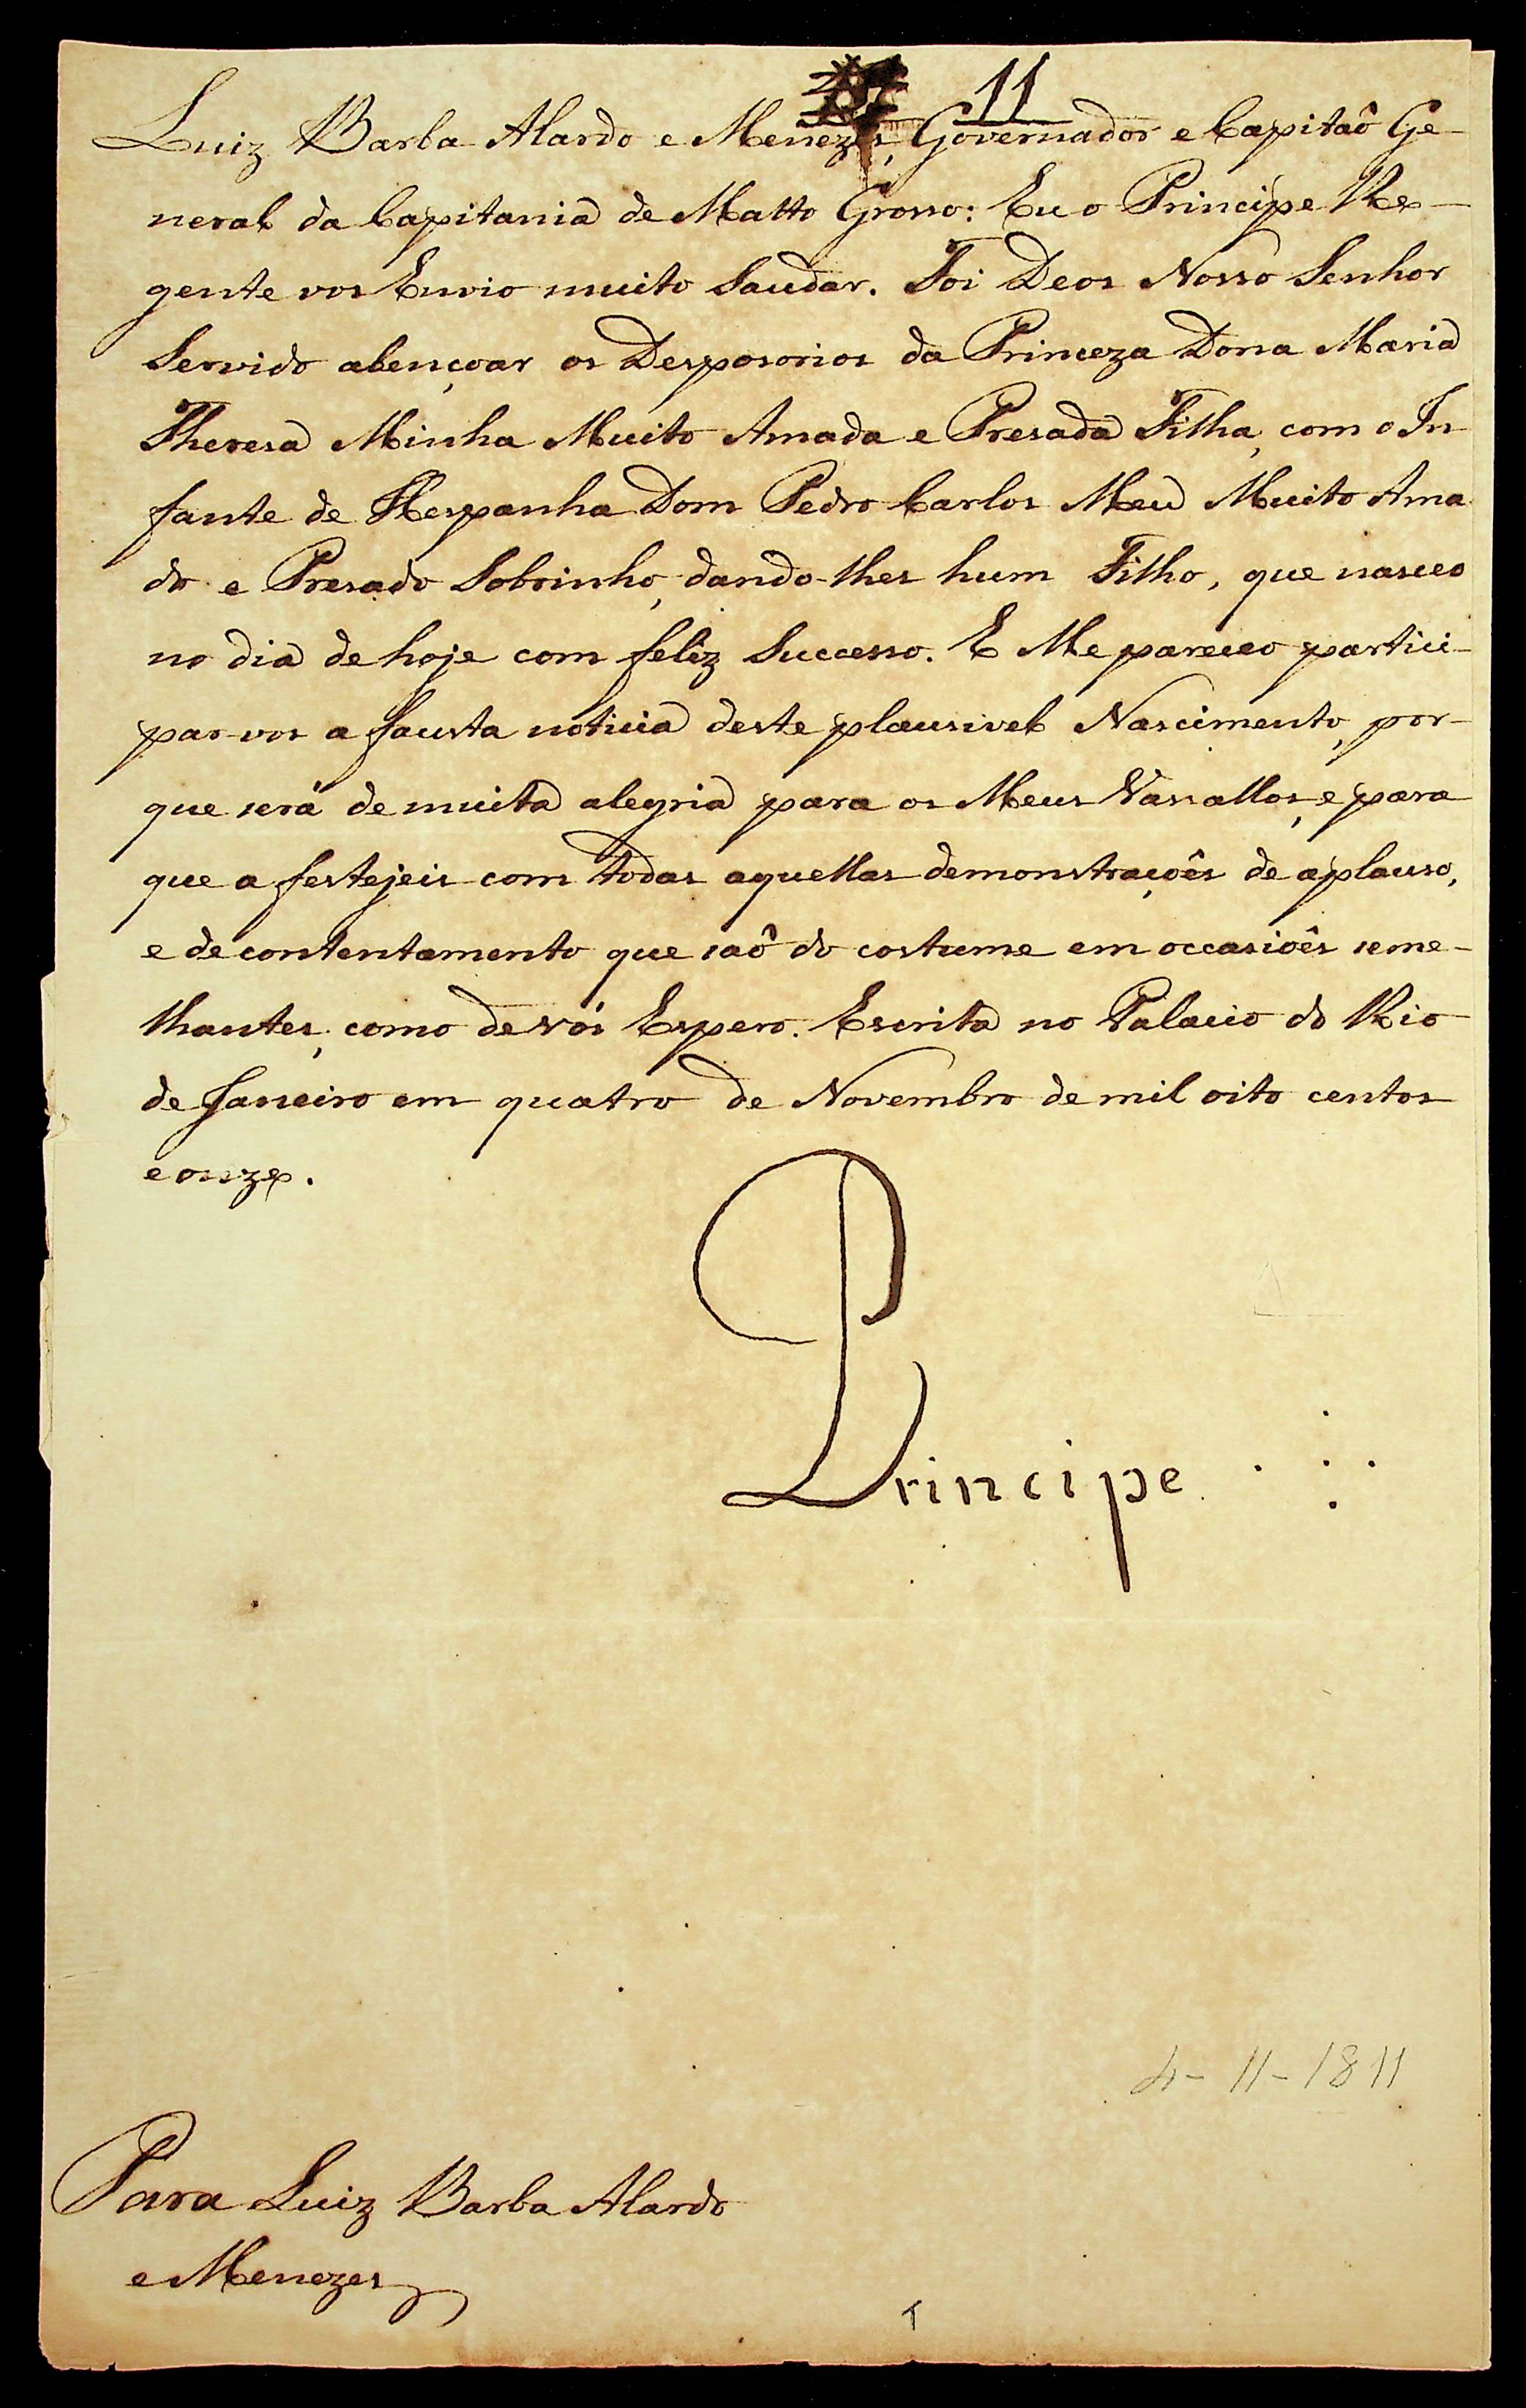 11
Luiz Barba Alardo e Menezes, Governador e Capitaõ Ge-
neral da Capitania de Matto Grosso: Eu o Principe Re-
gente vos Envio muito Saudar. Foi Deos Nosso Senhor
Servido abençoar os Desposorios da Princeza Dona Maria
Theresa Minha Muito Amada e Presada Filha, com o In
fante de Hespanha Dom Pedro Carlos Meu Muito Ama
do e Presado Sobrinho, dando-lhes hum Filho, que nasceo
no dia de hoje com feliz Successo. E Me pareceo partici-
par-vos a fausta noticia deste plausivel Nascimento, por-
que será de muita alegria para os Meus Vassallos, e para
que a festejeis com todas aquellas demonstraçoês de aplauso,
e de contentamento que saô do costume em occasioês seme-
lhantes, como de vós Espero. Escrita no Palacio do Rio
de Janeiro em quatro de Novembro de mil oito centos
e onze.
Principe
4-11-1811
Para Luiz Barba Alardo
e Menezes